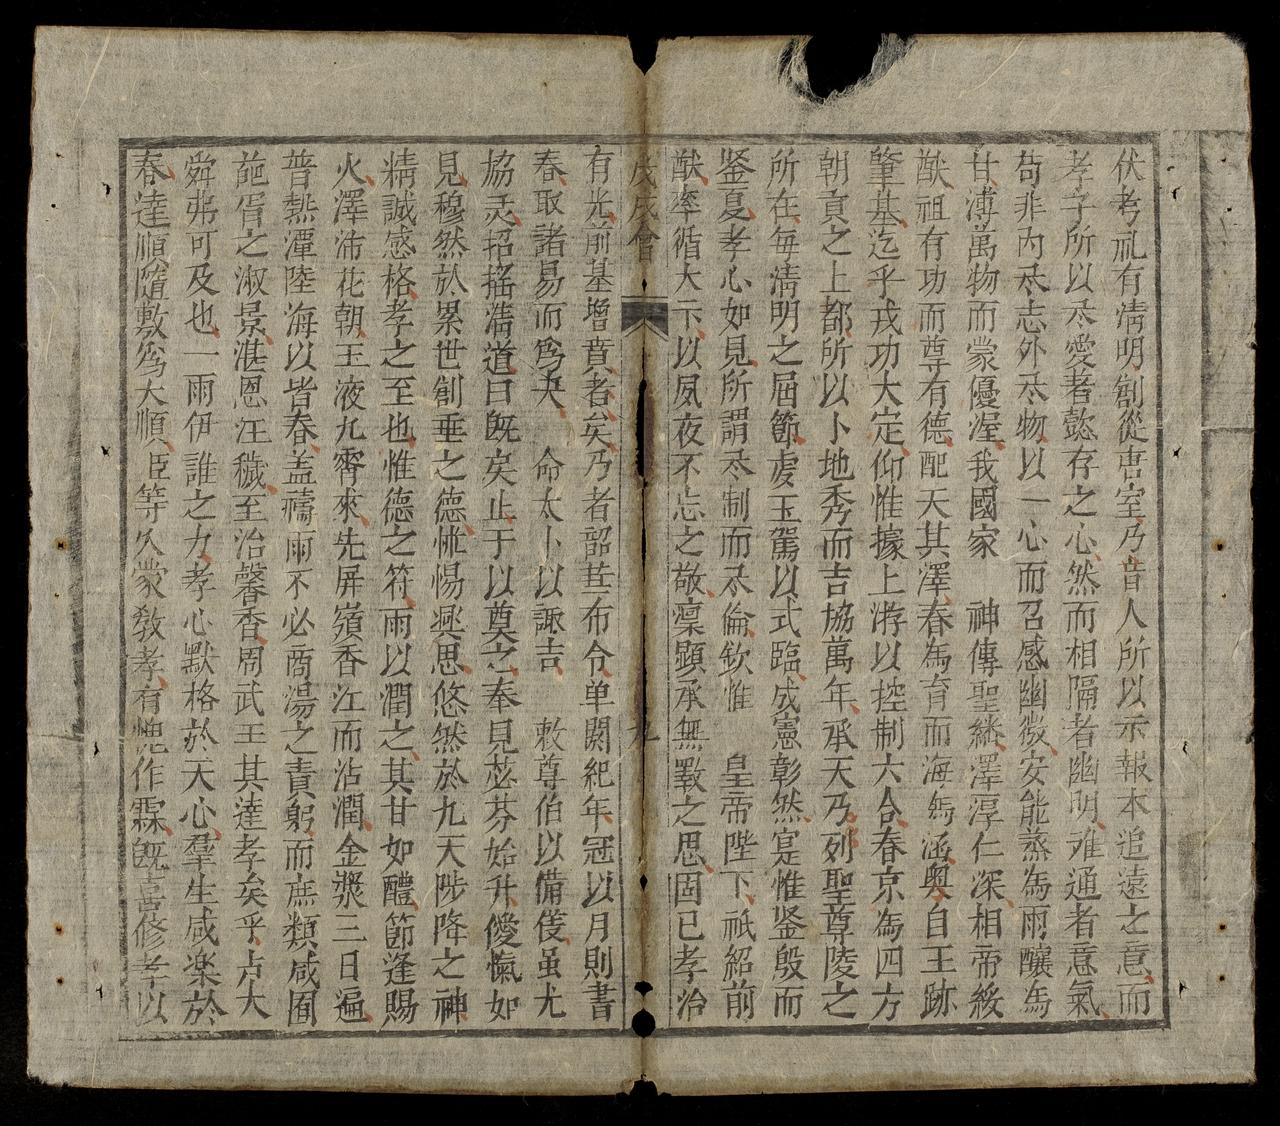 伏考礼有清明創從唐室乃昔人所以示報本追遠之意而
孝子所以尽愛著慤存之心然而相隔者幽明难通者意氣
苟非內尽志外尽物以一心而召感幽微安能蒸為雨釀為
甘溥萬物而蒙優渥我國家　神傳聖繼澤淳仁深相帝綏
猷祖有功而尊有德配天其澤春為育而海為涵奥自王跡
肇基迄乎戎功大定仰惟據上游以控制六合春京為四方
朝貢之上都所以卜地秀而吉協萬年承天乃列聖尊陵之
所在每清明之屆節虔玉駕以式臨成憲彰然寔惟鉴殷而
鉴夏孝心如見所謂尽制而尽倫欽惟　皇帝陛下祇紹前
猷率循大卞以夙夜不忘之敬凛顯承無斁之思固已孝治
戊戌會　九
有光前基增賁者矣乃者韶莛布令单閼紀年冠以月則書
春取諸易而為夬　命太卜以諏吉　敕尊伯以備俴虽尤
協灵招摇清道曰既矣止于以奠之奉見苾芬始升僾愾如
見穆然於累世創垂之德怵惕興思悠然於九天陟降之神
精誠感格孝之至也惟德之符雨以潤之其甘如醴節逢賜
火澤沛花朝玉液九霄來先屏嶺香江而沾潤金漿三日遍
普𤍠潭陸海以皆春盖禱雨不必商湯之責躬而庶類咸囿
葩胥之淑景湛恩汪穢至治馨香周武王其達孝矣乎占大
舜弗可及也一雨伊誰之力孝心默格於天心羣生咸楽於
春達順隨敷為大順臣等久蒙敎孝有愧作霖既喜修孝以